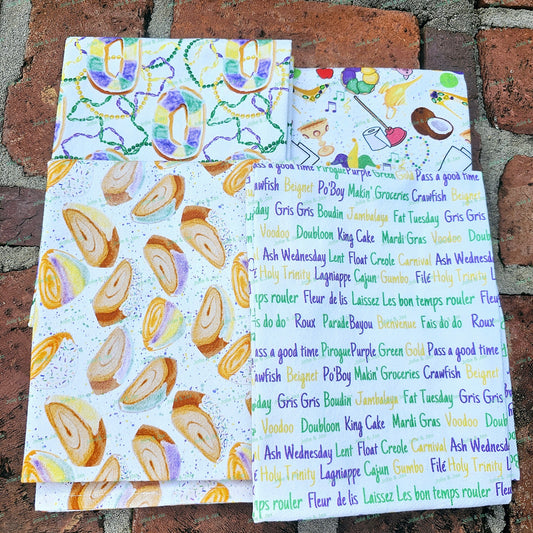 Pirogue Purple Green Gold Pass a good time
awfish Beignet Po'Boy Makin' Groceries Crawfish
Gris Gris Boudin Jambalaya Fat Tuesday Gris Gris
Voodoo Doubloon King Cake Mardi Gras Voodoo Doub
Ash Wednesday Lent Float Creole Carnival Ash Wednesday
Holy Trinity Lagniappe Cajun Gumbo Filé Holy Trinity
mps rouler Fleur de lis Laissez Les bon temps rouler Fleur
is do do Roux Parade Bayou Bienvenue Fais do do Roux
ass a good time Pirogue Purple Green Gold Pass a good time
awfish Beignet Po'Boy Makin' Groceries Crawfish Beig
Gris Gris Boudin Jambalaya Fat Tuesday Gris Gris
Voodoo Doubloon King Cake Mardi Gras Voodoo
Ash Wednesday Lent Float Creole Carnival Ash Wednesday
Holy Trinity Lagniappe Cajun Gumbo Filé Holy Trinity
mps rouler Fleur de lis Laissez Les bon temps rouler